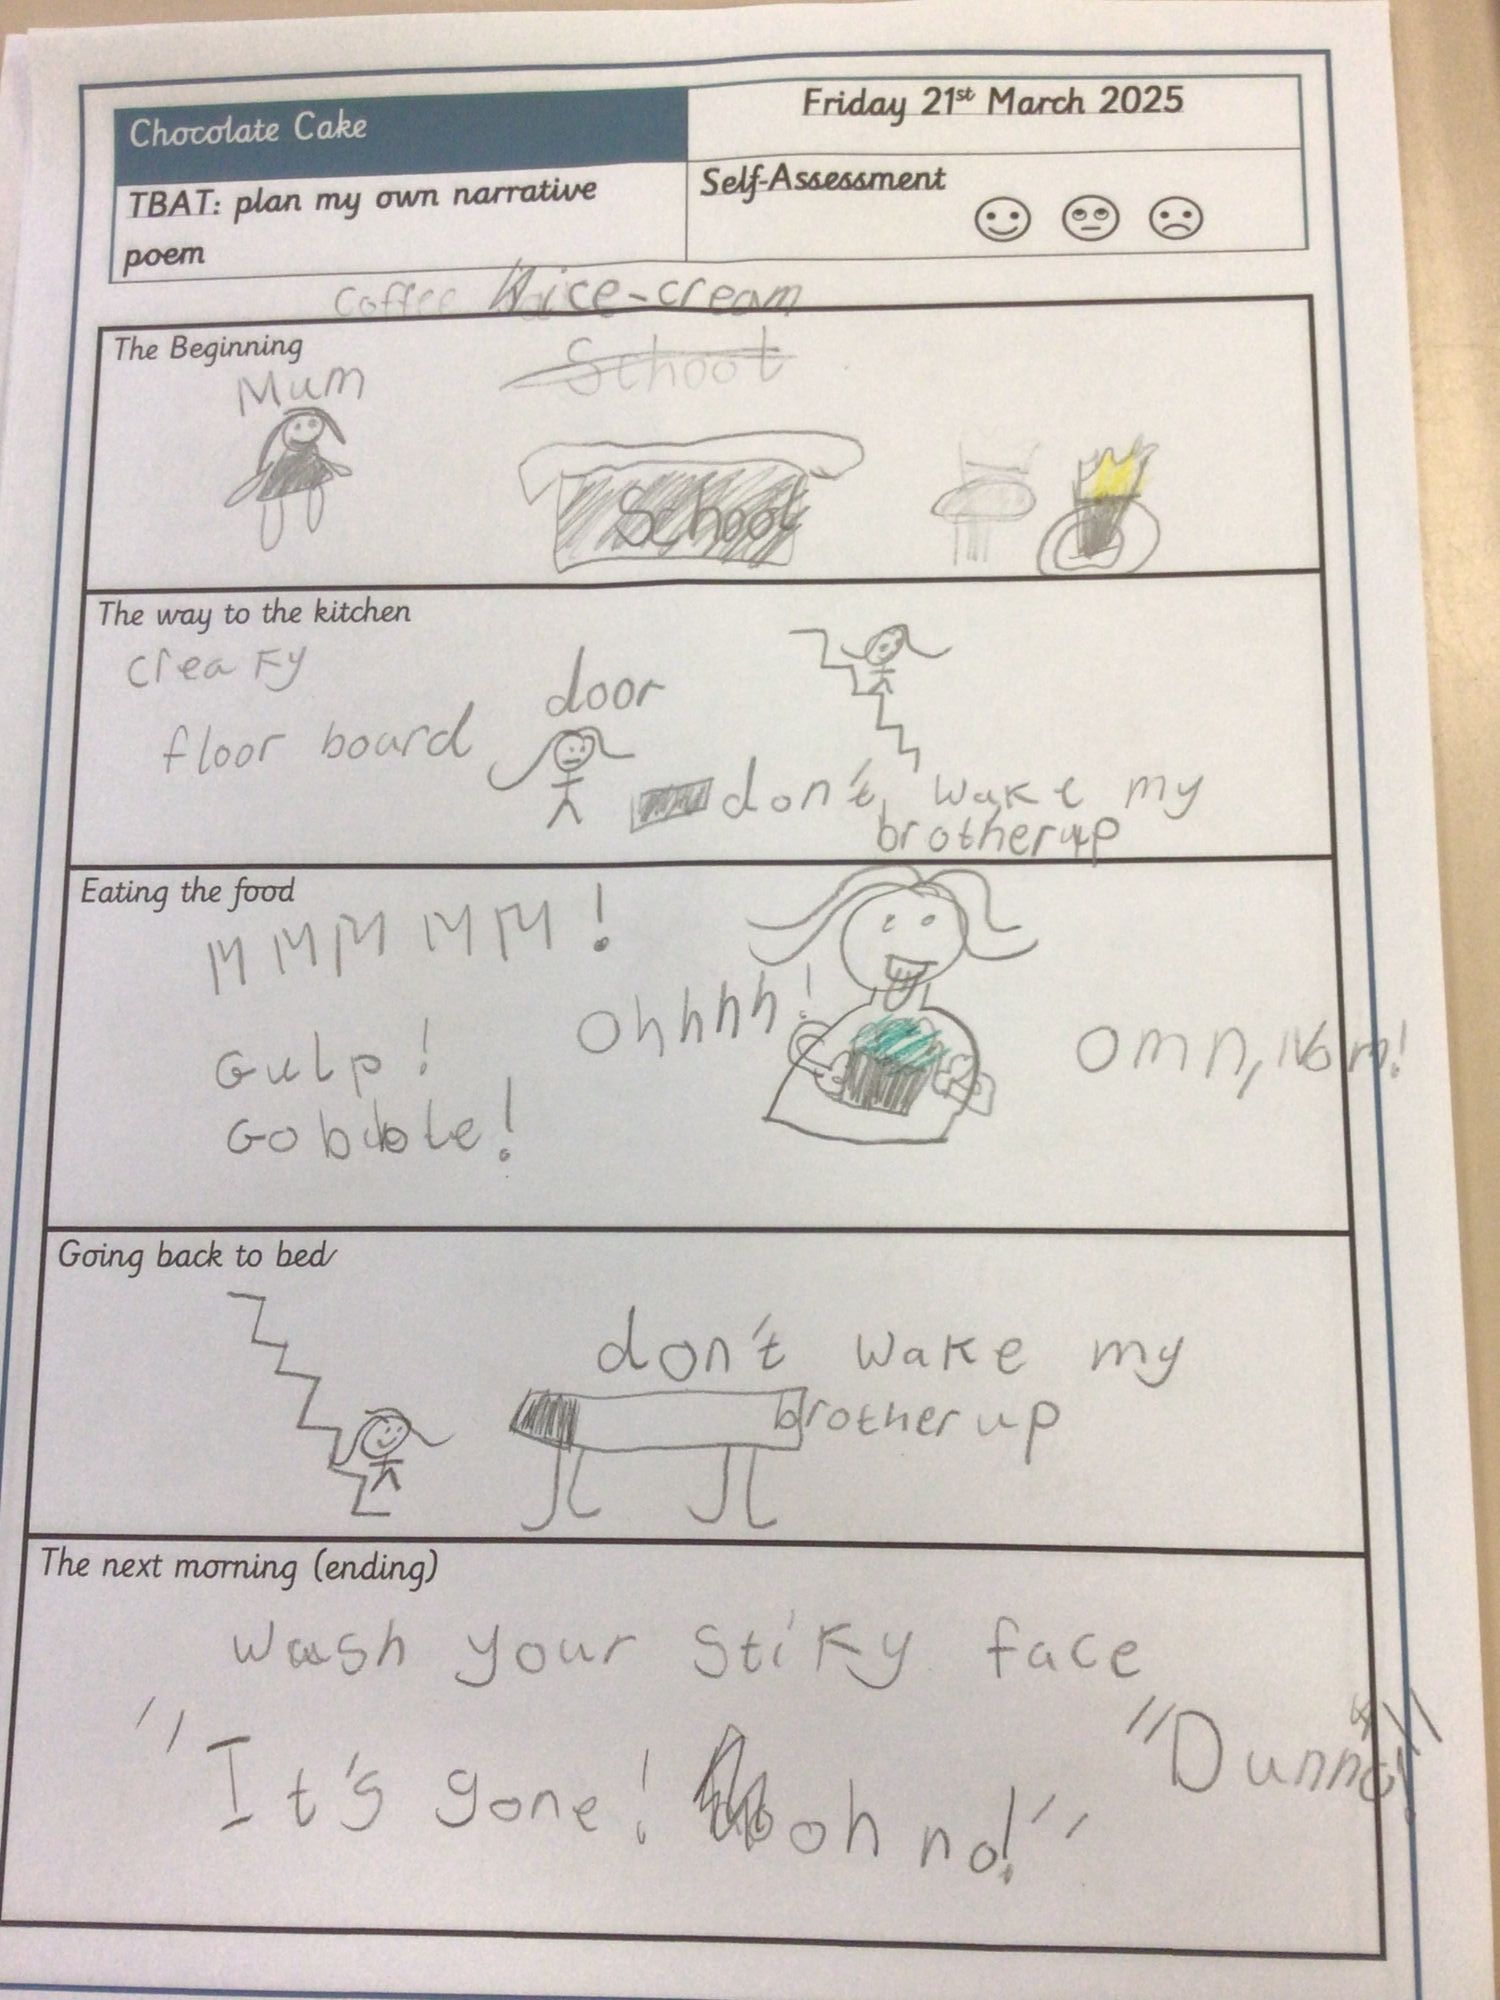 Chocolate Cake
Friday 21st March 2025
TBAT: plan my own narrative
poem
Self-Assessment
Coffee ice-cream
The Beginning
Mum
School
School
The way to the kitchen
creaky
floor board
door
don't wake my
brother up
Eating the food
MMMMM!
Ohhhh!
Omn, Nom!
Gulp!
Gobble!
Going back to bed
don't wake my
brother up
The next morning (ending)
wash your stiky face
"It's gone! oh no!"
"Dunno!"